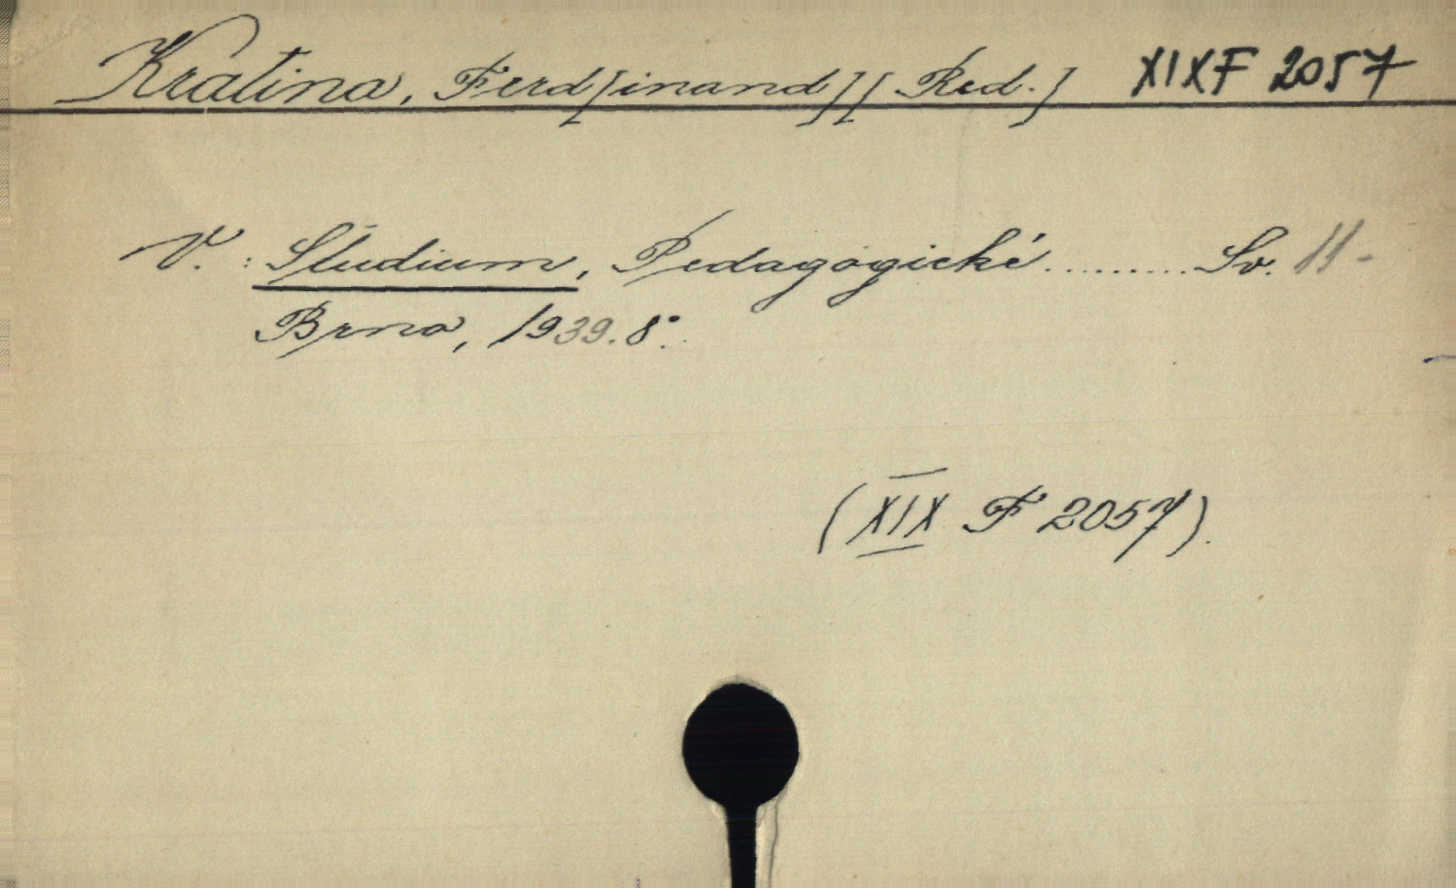 Kratina, Ferd[inand] [Red.] XIXF 2057
V.: Studium, Pedagogické.......... Sv. 11-
Brno, 1939. 8°.
(XIX F 2057).